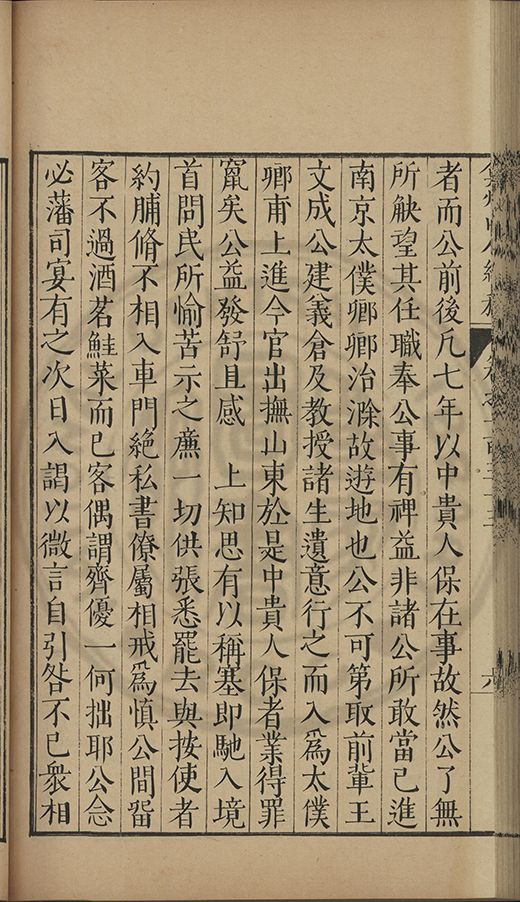 者而公前後凡七年以中貴人保在事故然公了無
所觖望其任職奉公事有裨益非諸公所敢當已進
南京太僕卿卿治滁故遊地也公不可第取前輩王
文成公建義倉及教授諸生遺意行之而入爲太僕
卿甫上進今官出撫山東於是中貴人保者業得罪
竄矣公益發舒且感　上知思有以稱塞即馳入境
首問民所愉苦示之廉一切供張悉罷去與按使者
約脯脩不相入車門絕私書僚屬相戒爲慎公間畱
客不過酒茗鮭菜而已客偶謂齊優一何拙耶公念
必藩司宴有之次日入謁以微言自引咎不已衆相